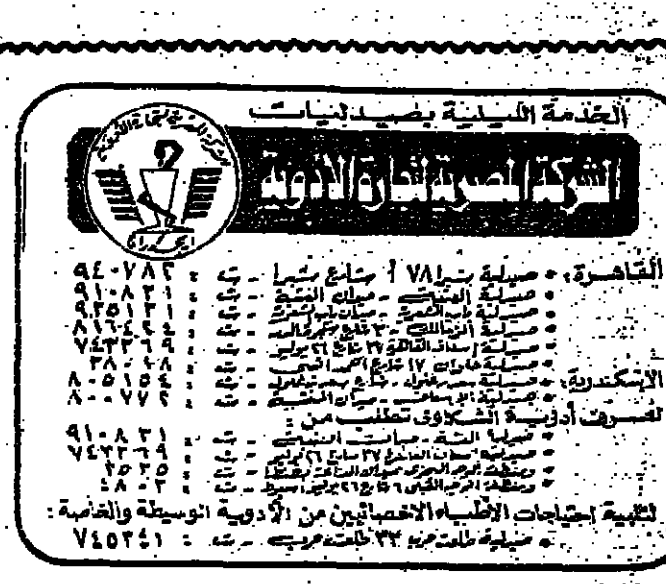 الخدمة الليلية بصيدليات
الشركة المصرية لتجارة الأدوية
الشركة المصرية لتجارة الأدوية
القاهرة: • صيدلية شبرا ٧٨ أ شارع شبرا - ت : ٩٤٠٧٨٢
• صيدلية العتبة - ميدان العتبة - ت : ٩١٠٨٣١
• صيدلية باب الشعرية - ميدان باب الشعرية - ت : ٩٣٥١٣١
• صيدلية الزمالك - ٣ شارع شجرة الدر - ت : ٨١٦٤٢٤
• صيدلية إسعاف القاهرة ٣٧ شارع ٢٦ يوليو - ت : ٧٤٣٣٦٩
• صيدلية حلوان ١٧ شارع أحمد - ت : ٣٨٠٤٨
الاسكندرية: • صيدلية سعد زغلول - شارع سعد زغلول - ت : ٨٠٥١٥٤
• صيدلية الإسعاف - ميدان المنشية - ت : ٨٠٠٧٧٢
لصرف أدوية الشكاوى تطلب من :
• صيدلية العتبة - ميدان العتبة - ت : ٩١٠٨٣١
• صيدلية إسعاف القاهرة ٣٧ شارع ٢٦ يوليو - ت : ٧٤٣٣٦٩
• ومنطقة الوجه البحرى بطنطا - ت : ٢٥٢٥
• ومنطقة الوجه القبلى ٦ شارع ٢٦ يوليو أسيوط - ت : ٤٨٠٢
لتلبية إحتياجات الأطباء الاخصائيين من الأدوية الوسيطة والخاصة :
• صيدلية طلعت حرب ٣٣ طلعت حرب - ت : ٧٤٥٢٤١